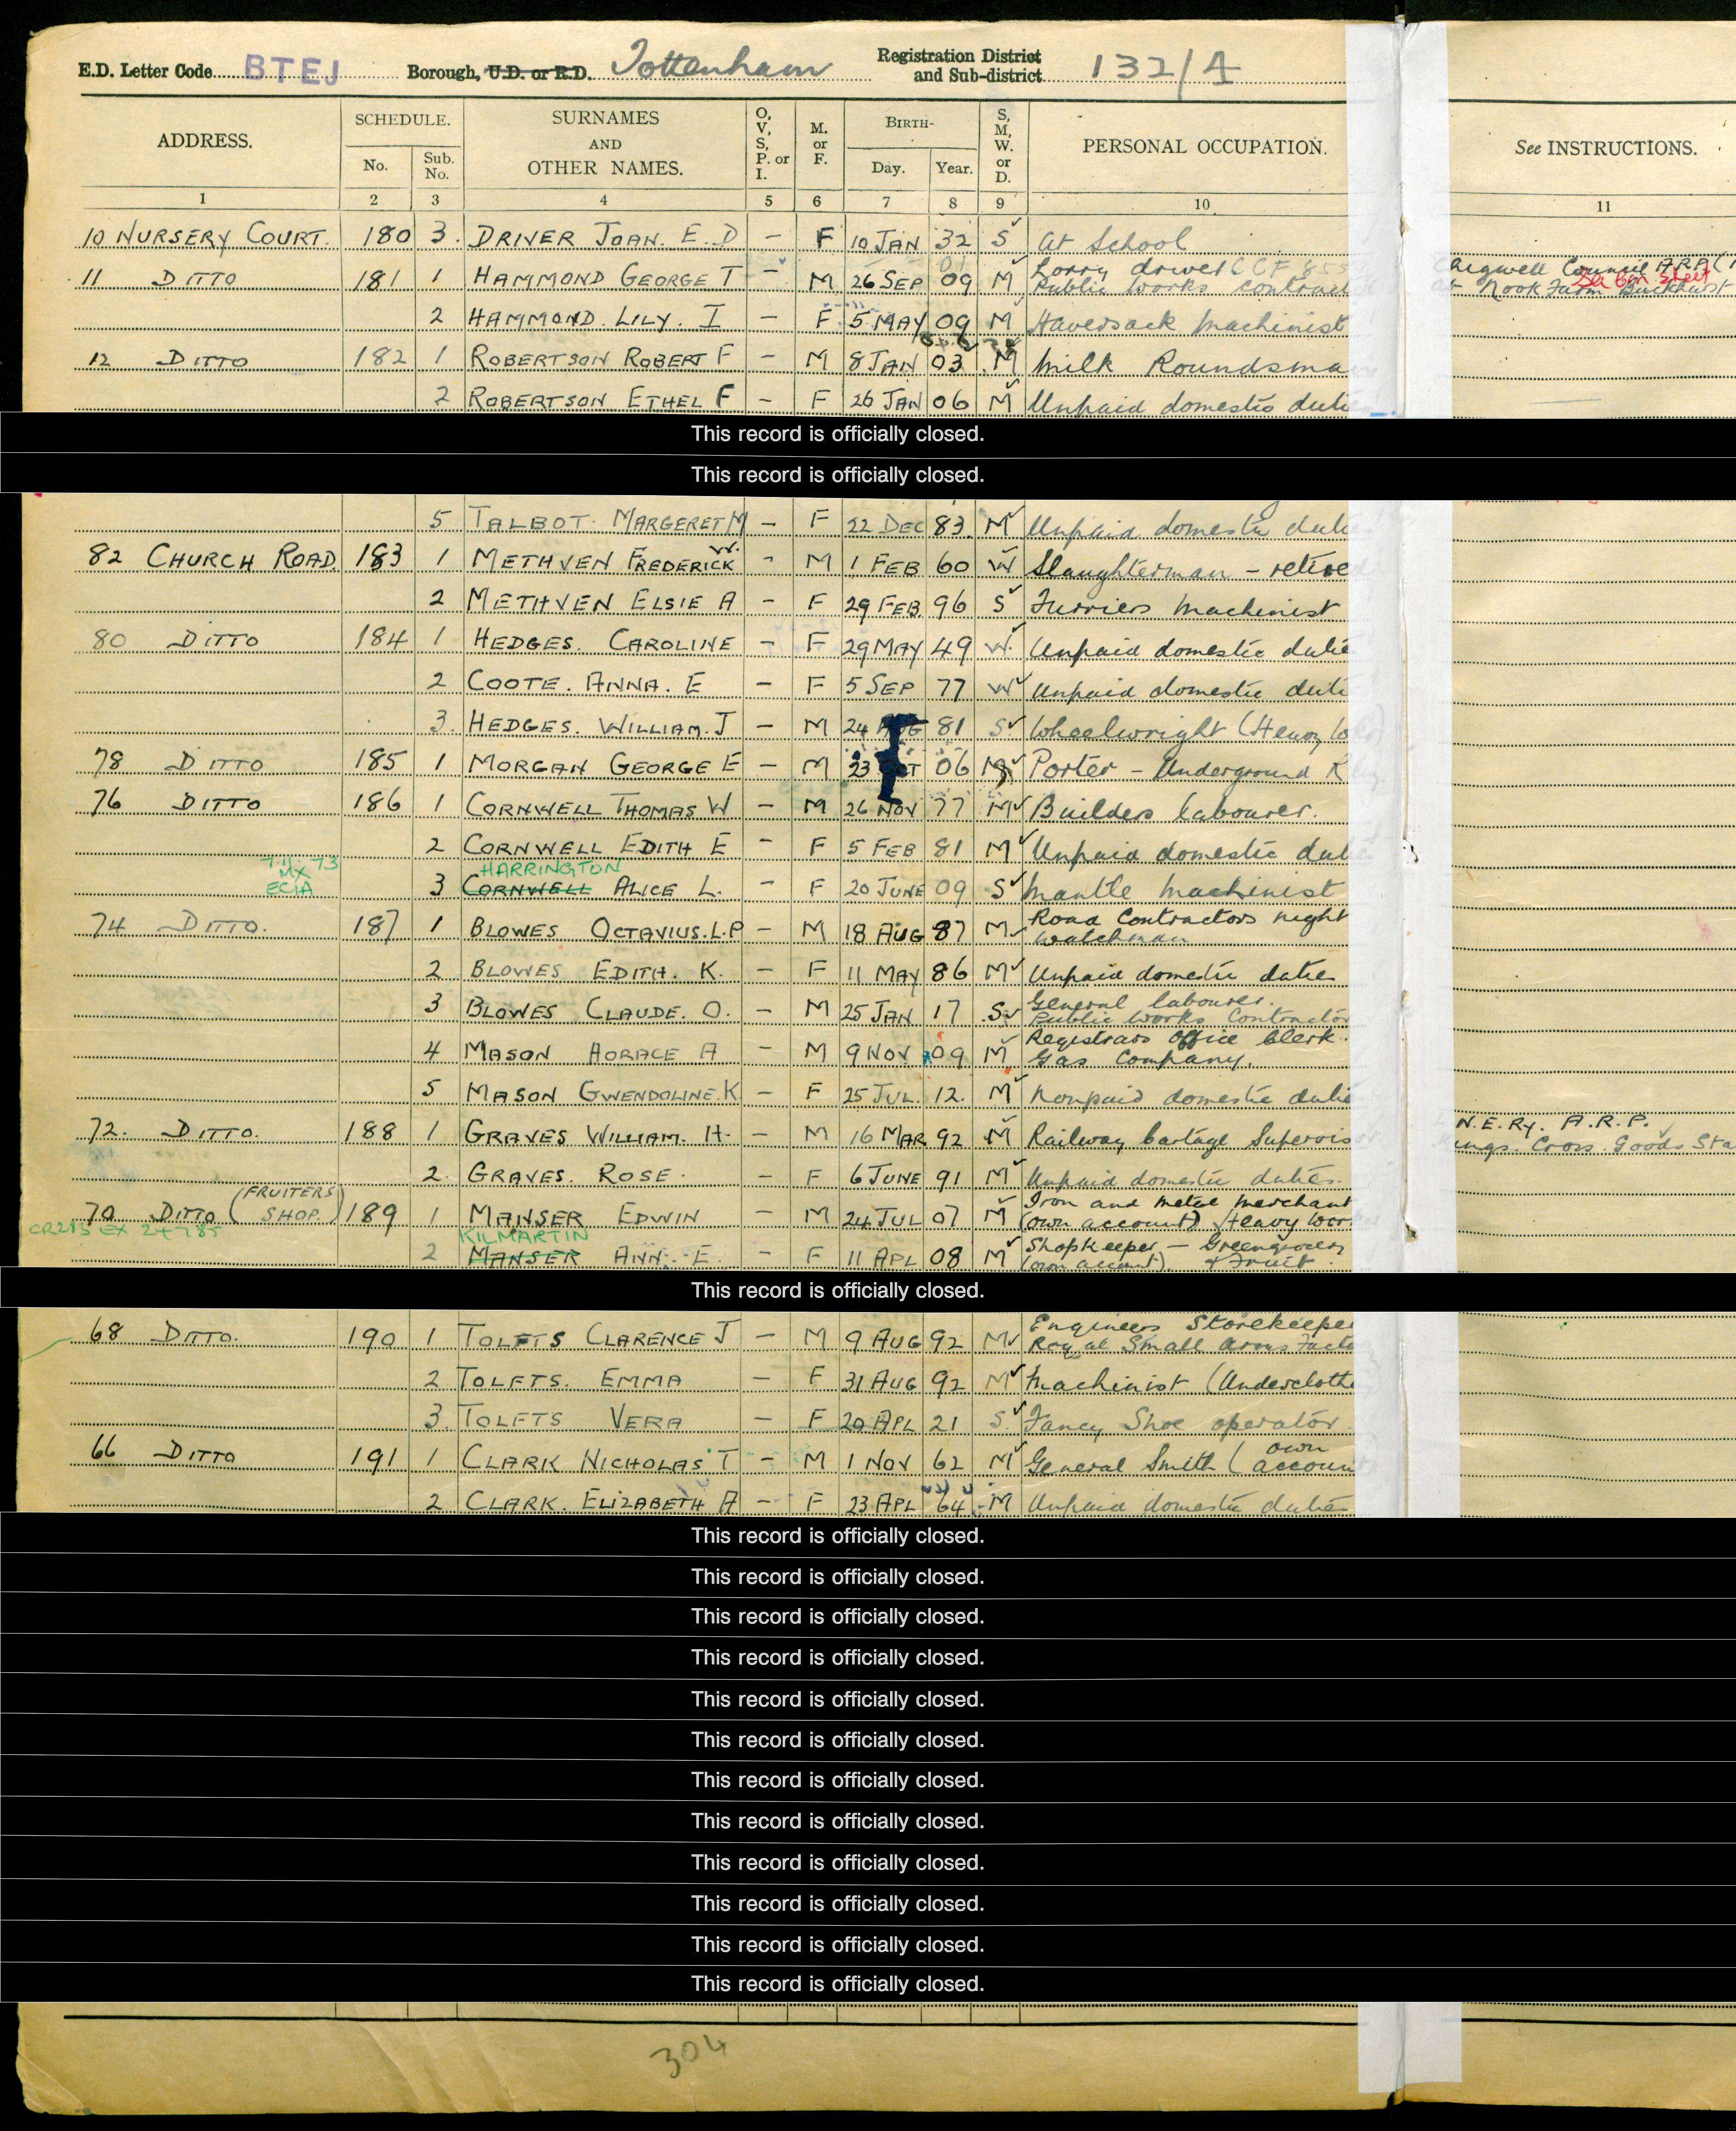 E.D. Letter Code BTEJ Borough, U.D. or R.D. Tottenham Registration District and Sub-district 132/A
ADDRESS. SCHEDULE. No. Sub. No. SURNAMES AND OTHER NAMES. O, V, S, P. or I. M. or F. BIRTH- Day. Year. S, M, W. or D. PERSONAL OCCUPATION. See INSTRUCTIONS.
1 2 3 4 5 6 7 8 9 10 11
10 NURSERY COURT. 180 3. DRIVER JOAN. E. D – F 10 JAN 32 S At School
11 DITTO 181 1 HAMMOND GEORGE T – M 26 SEP 09 M Lorry driver CCF 855 Public Works contract Chigwell Council A.R.P. at Nook Farm Buckhurst
2 HAMMOND. LILY. I – F 5 MAY 09 M Haversack Machinist
12 DITTO 182 1 ROBERTSON ROBERT F – M 8 JAN 03 M Milk Roundsma
2 ROBERTSON ETHEL F – F 26 JAN 06 M Unpaid domestic dutie
This record is officially closed.
This record is officially closed.
5 TALBOT. MARGERET M – F 22 DEC 83. M Unpaid domestic dutie
82 CHURCH ROAD. 183 1 METHVEN FREDERICK W. – M 1 FEB 60 W Slaughterman – retired
2 METHVEN ELSIE A – F 29 FEB 96 S Furriers Machinist
80 DITTO 184 1 HEDGES. CAROLINE – F 29 MAY 49 W. Unpaid domestic dutie
2 COOTE. ANNA. E – F 5 SEP 77 W Unpaid domestic duti
3. HEDGES. WILLIAM. J – M 24 AUG 81 S Wheelwright (Heavy
78 DITTO 185 1 MORGAN GEORGE E – M 23 OCT 06 M Porter – Underground
76 DITTO 186 1 CORNWELL THOMAS W – M 26 NOV 77 M Builders labourer.
2 CORNWELL EDITH E – F 5 FEB 81 M Unpaid domestic dutie
7.11.73 MX ECIA HARRINGTON
3 CORNWELL ALICE L. – F 20 JUNE 09 S Mantle Machinist
74 DITTO. 187 1 BLOWES OCTAVIUS. L. P – M 18 AUG 87 M Road Contractors night watchman
2 BLOWES EDITH. K. – F 11 MAY 86 M Unpaid domestic dutie
3 BLOWES CLAUDE. O. – M 25 JAN 17 S General labourer. Public Works Contractor
4 MASON HORACE A – M 9 NOV 09 M Registrars Office Clerk. Gas Company.
5 MASON GWENDOLINE. K – F 25 JUL. 12. M Nonpaid domestic dutie
72. DITTO. 188 1 GRAVES WILLIAM. H. – M 16 MAR 92 M Railway Cartage Supervis N.E.Ry. A.R.P. ings. Cross. Goods Sta
2. GRAVES. ROSE. – F 6 JUNE 91 M Unpaid domestic duties.
70 DITTO (FRUITERS SHOP.) 189 1 MANSER EDWIN – M 24 JUL 07 M Iron and metal merchant (own account) Heavy Work
KILMARTIN
2 MANSER ANN. E. – F 11 APL 08 M Shopkeeper – Greengrocery (own account). & Fruit.
This record is officially closed.
68 DITTO. 190 1 TOLFTS CLARENCE J – M 9 AUG 92 M Engineers Storekeeper Royal Small Arms Facto
2 TOLFTS. EMMA – F 31 AUG 92 M Machinist (Undercloth
3. TOLFTS VERA – F 20 APL 21 S. Fancy Shoe operator.
66 DITTO 191 1 CLARK NICHOLAS T – M 1 NOV 62 M General Smith (own account
2 CLARK. ELIZABETH A – F 23 APL 64 M Unpaid domestic dutie
This record is officially closed.
This record is officially closed.
This record is officially closed.
This record is officially closed.
This record is officially closed.
This record is officially closed.
This record is officially closed.
This record is officially closed.
This record is officially closed.
This record is officially closed.
This record is officially closed.
This record is officially closed.
304